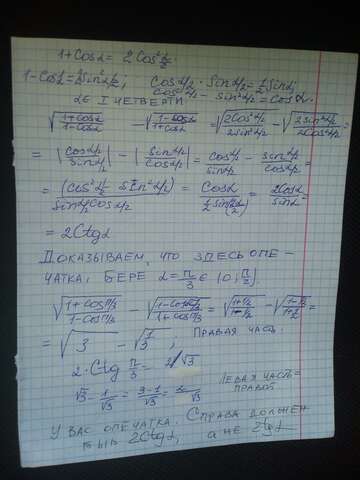 1+Cosα = 2Cos²α/2
1-Cosα = 2Sin²α/2; Cosα/2 · Sinα/2 = 1/2 Sinα;
Cos²α/2 - Sin²α/2 = Cosα.
α ∈ I ЧЕТВЕРТИ
√(1+Cosα / 1-Cosα) - √(1-Cosα / 1+Cosα) = √(2Cos²α/2 / 2Sin²α/2) - √(2Sin²α/2 / 2Cos²α/2) =
= |Cosα/2 / Sinα/2| - |Sinα/2 / Cosα/2| = Cosα/2 / Sinα/2 - Sinα/2 / Cosα/2 =
= (Cos²α/2 - Sin²α/2) / Sinα/2 Cosα/2 = Cosα / 1/2 Sin(2·α/2) = 2Cosα / Sinα =
= 2Ctgα
ДОКАЗЫВАЕМ, ЧТО ЗДЕСЬ ОПЕ-
ЧАТКА, БЕРЕ α = π/3 ∈ (0; π/2).
√(1+Cosπ/3 / 1-Cosπ/3) - √(1-Cosπ/3 / 1+Cosπ/3) = √(1+1/2 / 1-1/2) - √(1-1/2 / 1+1/2) =
= √3 - √(1/3); ПРАВАЯ ЧАСТЬ:
2·Ctg π/3 = 2/√3
√3 - 1/√3 = 3-1/√3 = 2/√3 ЛЕВАЯ ЧАСТЬ =
ПРАВОЙ
У ВАС ОПЕЧАТКА. СПРАВА ДОЛЖЕН
БЫТЬ 2Ctgα, а НЕ 2tgα